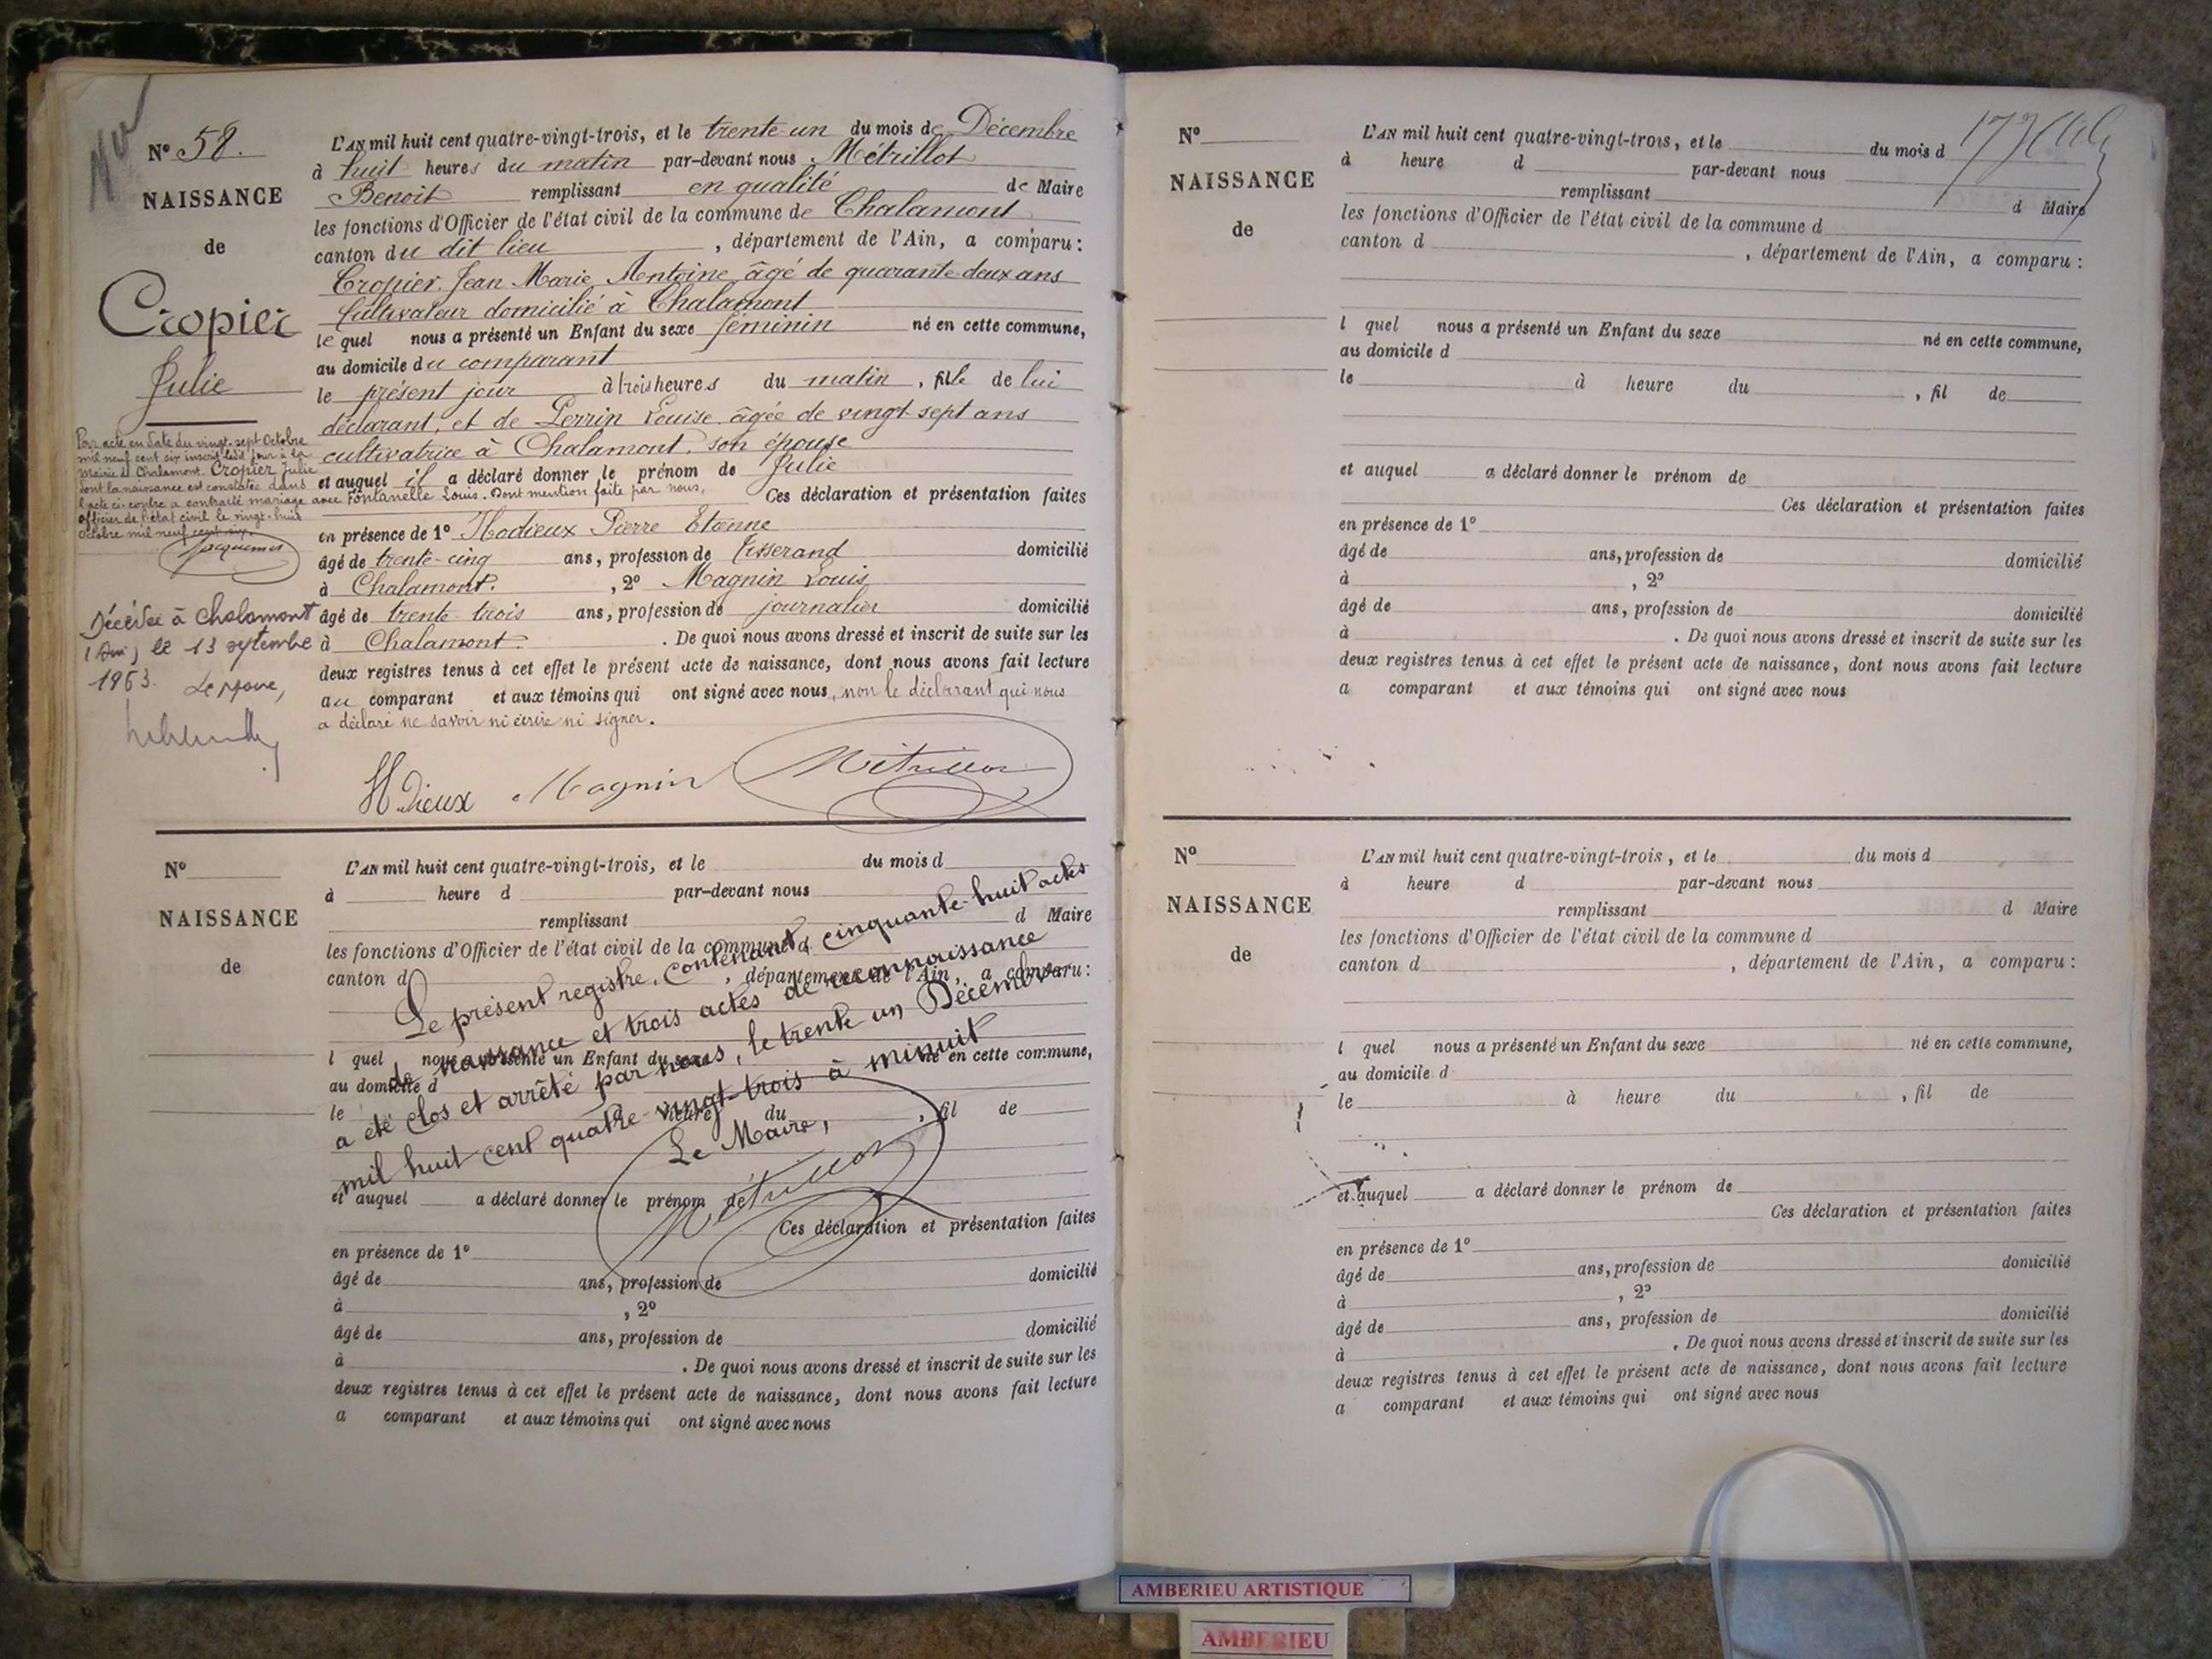 Nº 58.
NAISSANCE
de
Cropier
Julie
Par acte en date du vingt-sept Octobre
mil neuf cent six inscrit ledit jour à la
Mairie de Chalamont. Cropier Julie
dont la naissance est constatée dans
l'acte ci-contre a contracté mariage avec Fontanelle Louis. Dont mention faite par nous,
Officier de l'état civil le vingt-huit
Octobre mil neuf cent six.
Décédée à Chalamont
(Ain) le 13 septembre
1963.
L'AN mil huit cent quatre-vingt-trois, et le trente-un du mois de Décembre
à huit heures du matin par-devant nous Métrillot
Benoit remplissant en qualité de Maire
les fonctions d'Officier de l'état civil de la commune de Chalamont
canton du dit lieu, département de l'Ain, a comparu :
Cropier Jean Marie Antoine âgé de quarante-deux ans
Cultivateur domicilié à Chalamont
lequel nous a présenté un Enfant du sexe féminin né en cette commune,
au domicile du comparant
le présent jour à trois heures du matin, fille de lui
déclarant, et de Perrin Louise âgée de vingt sept ans
cultivatrice à Chalamont, son épouse
et auquel il a déclaré donner le prénom de Julie
Ces déclaration et présentation faites
en présence de 1º Hodieux Pierre Etienne
âgé de trente-cinq ans, profession de tisserand domicilié
à Chalamont. , 2º Magnin Louis
âgé de trente trois ans, profession de journalier domicilié
à Chalamont. . De quoi nous avons dressé et inscrit de suite sur les
deux registres tenus à cet effet le présent acte de naissance, dont nous avons fait lecture
au comparant et aux témoins qui ont signé avec nous, non le déclarant qui nous
a déclaré ne savoir ni écrire ni signer.
Hodieux Magnin Métrillot
Nº
NAISSANCE
de
L'AN mil huit cent quatre-vingt-trois, et le du mois d
à heure d par-devant nous
remplissant d Maire
les fonctions d'Officier de l'état civil de la commune d
canton d , département de l'Ain, a comparu :
l quel nous a présenté un Enfant du sexe né en cette commune,
au domicile d
le à heure du , fil de
et auquel a déclaré donner le prénom de
Ces déclaration et présentation faites
en présence de 1º
âgé de ans, profession de domicilié
à , 2º
âgé de ans, profession de domicilié
à . De quoi nous avons dressé et inscrit de suite sur les
deux registres tenus à cet effet le présent acte de naissance, dont nous avons fait lecture
a comparant et aux témoins qui ont signé avec nous
Le présent registre, contenant cinquante-huit actes
de naissance et trois actes de reconnaissance
a été clos et arrêté par nous, le trente un Décembre
mil huit cent quatre-vingt-trois à minuit
Le Maire,
Métrillot
Nº
NAISSANCE
de
L'AN mil huit cent quatre-vingt-trois, et le du mois d
à heure d par-devant nous
remplissant d Maire
les fonctions d'Officier de l'état civil de la commune d
canton d , département de l'Ain, a comparu :
l quel nous a présenté un Enfant du sexe né en cette commune,
au domicile d
le à heure du , fil de
et auquel a déclaré donner le prénom de
Ces déclaration et présentation faites
en présence de 1º
âgé de ans, profession de domicilié
à , 2º
âgé de ans, profession de domicilié
à . De quoi nous avons dressé et inscrit de suite sur les
deux registres tenus à cet effet le présent acte de naissance, dont nous avons fait lecture
a comparant et aux témoins qui ont signé avec nous
Nº
NAISSANCE
de
L'AN mil huit cent quatre-vingt-trois, et le du mois d
à heure d par-devant nous
remplissant d Maire
les fonctions d'Officier de l'état civil de la commune d
canton d , département de l'Ain, a comparu :
l quel nous a présenté un Enfant du sexe né en cette commune,
au domicile d
le à heure du , fil de
et auquel a déclaré donner le prénom de
Ces déclaration et présentation faites
en présence de 1º
âgé de ans, profession de domicilié
à , 2º
âgé de ans, profession de domicilié
à . De quoi nous avons dressé et inscrit de suite sur les
deux registres tenus à cet effet le présent acte de naissance, dont nous avons fait lecture
a comparant et aux témoins qui ont signé avec nous
AMBERIEU ARTISTIQUE
AMBERIEU